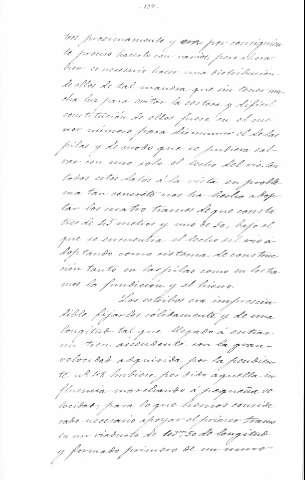 - 152 -
tros proximamente y era por consiguien
te preciso hacerlo con varios, pero ahora
bien es necesario hacer una distribucion
de ellos de tal manera que sin tener mu
cha luz para evitar la costosa y dificil
constitucion de ellos fuese en el me
nor número para disminuir el de las
pilas y de modo que se pudiera sal
var con uno solo el lecho del rio. Con
todos estos datos á la vista, en proble
ma tan conocido nos ha hecho adop
tar los cuatro tramos de que consta
tres de 45 metros y uno de 50, bajo el
que se encuentra el lecho del rio a
doptando como sistema de construc
ción tanto en las pilas como en los tra
mos la fundición y el hierro.
Los estribos era imprescin
dible fijarlos sólidamente y de una
longitud tal que llegado á entrar
un tren ascendente con la gran
velocidad adquirida por la pendien
te hubiera perdido aquella in
fluencia marchando á pequeña ve
locidad, para lo que hemos conside
rado necesario apoyar el primer tramo
en un viaducto de de longitud
y formado primero de un muro